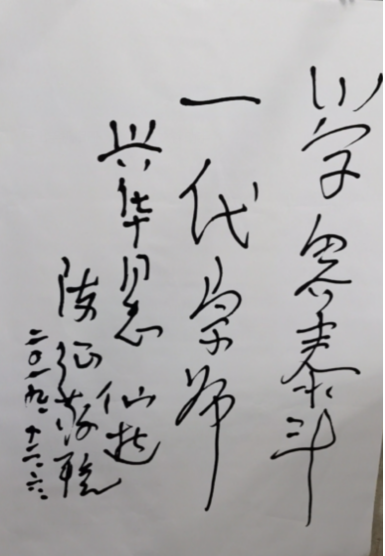 学界泰斗
一代宗师
兴华恩仙逝
陈征敬挽
二〇一九.十二.六.